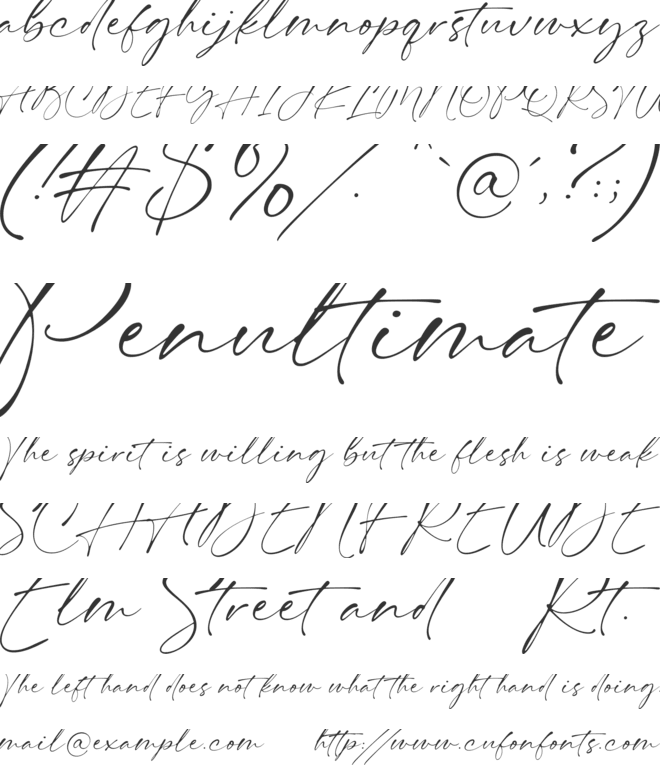 abcdefghijklmnopqrstuvwxyz
ABCDEFGHIJKLMNOPQRSTU
(!#$%/. ^`@´,?:;)
Penultimate
The spirit is willing but the flesh is weak
SCHADENFREUDE
Elm Street and Rt.
The left hand does not know what the right hand is doing.
mail@example.com http://www.cufonfonts.com